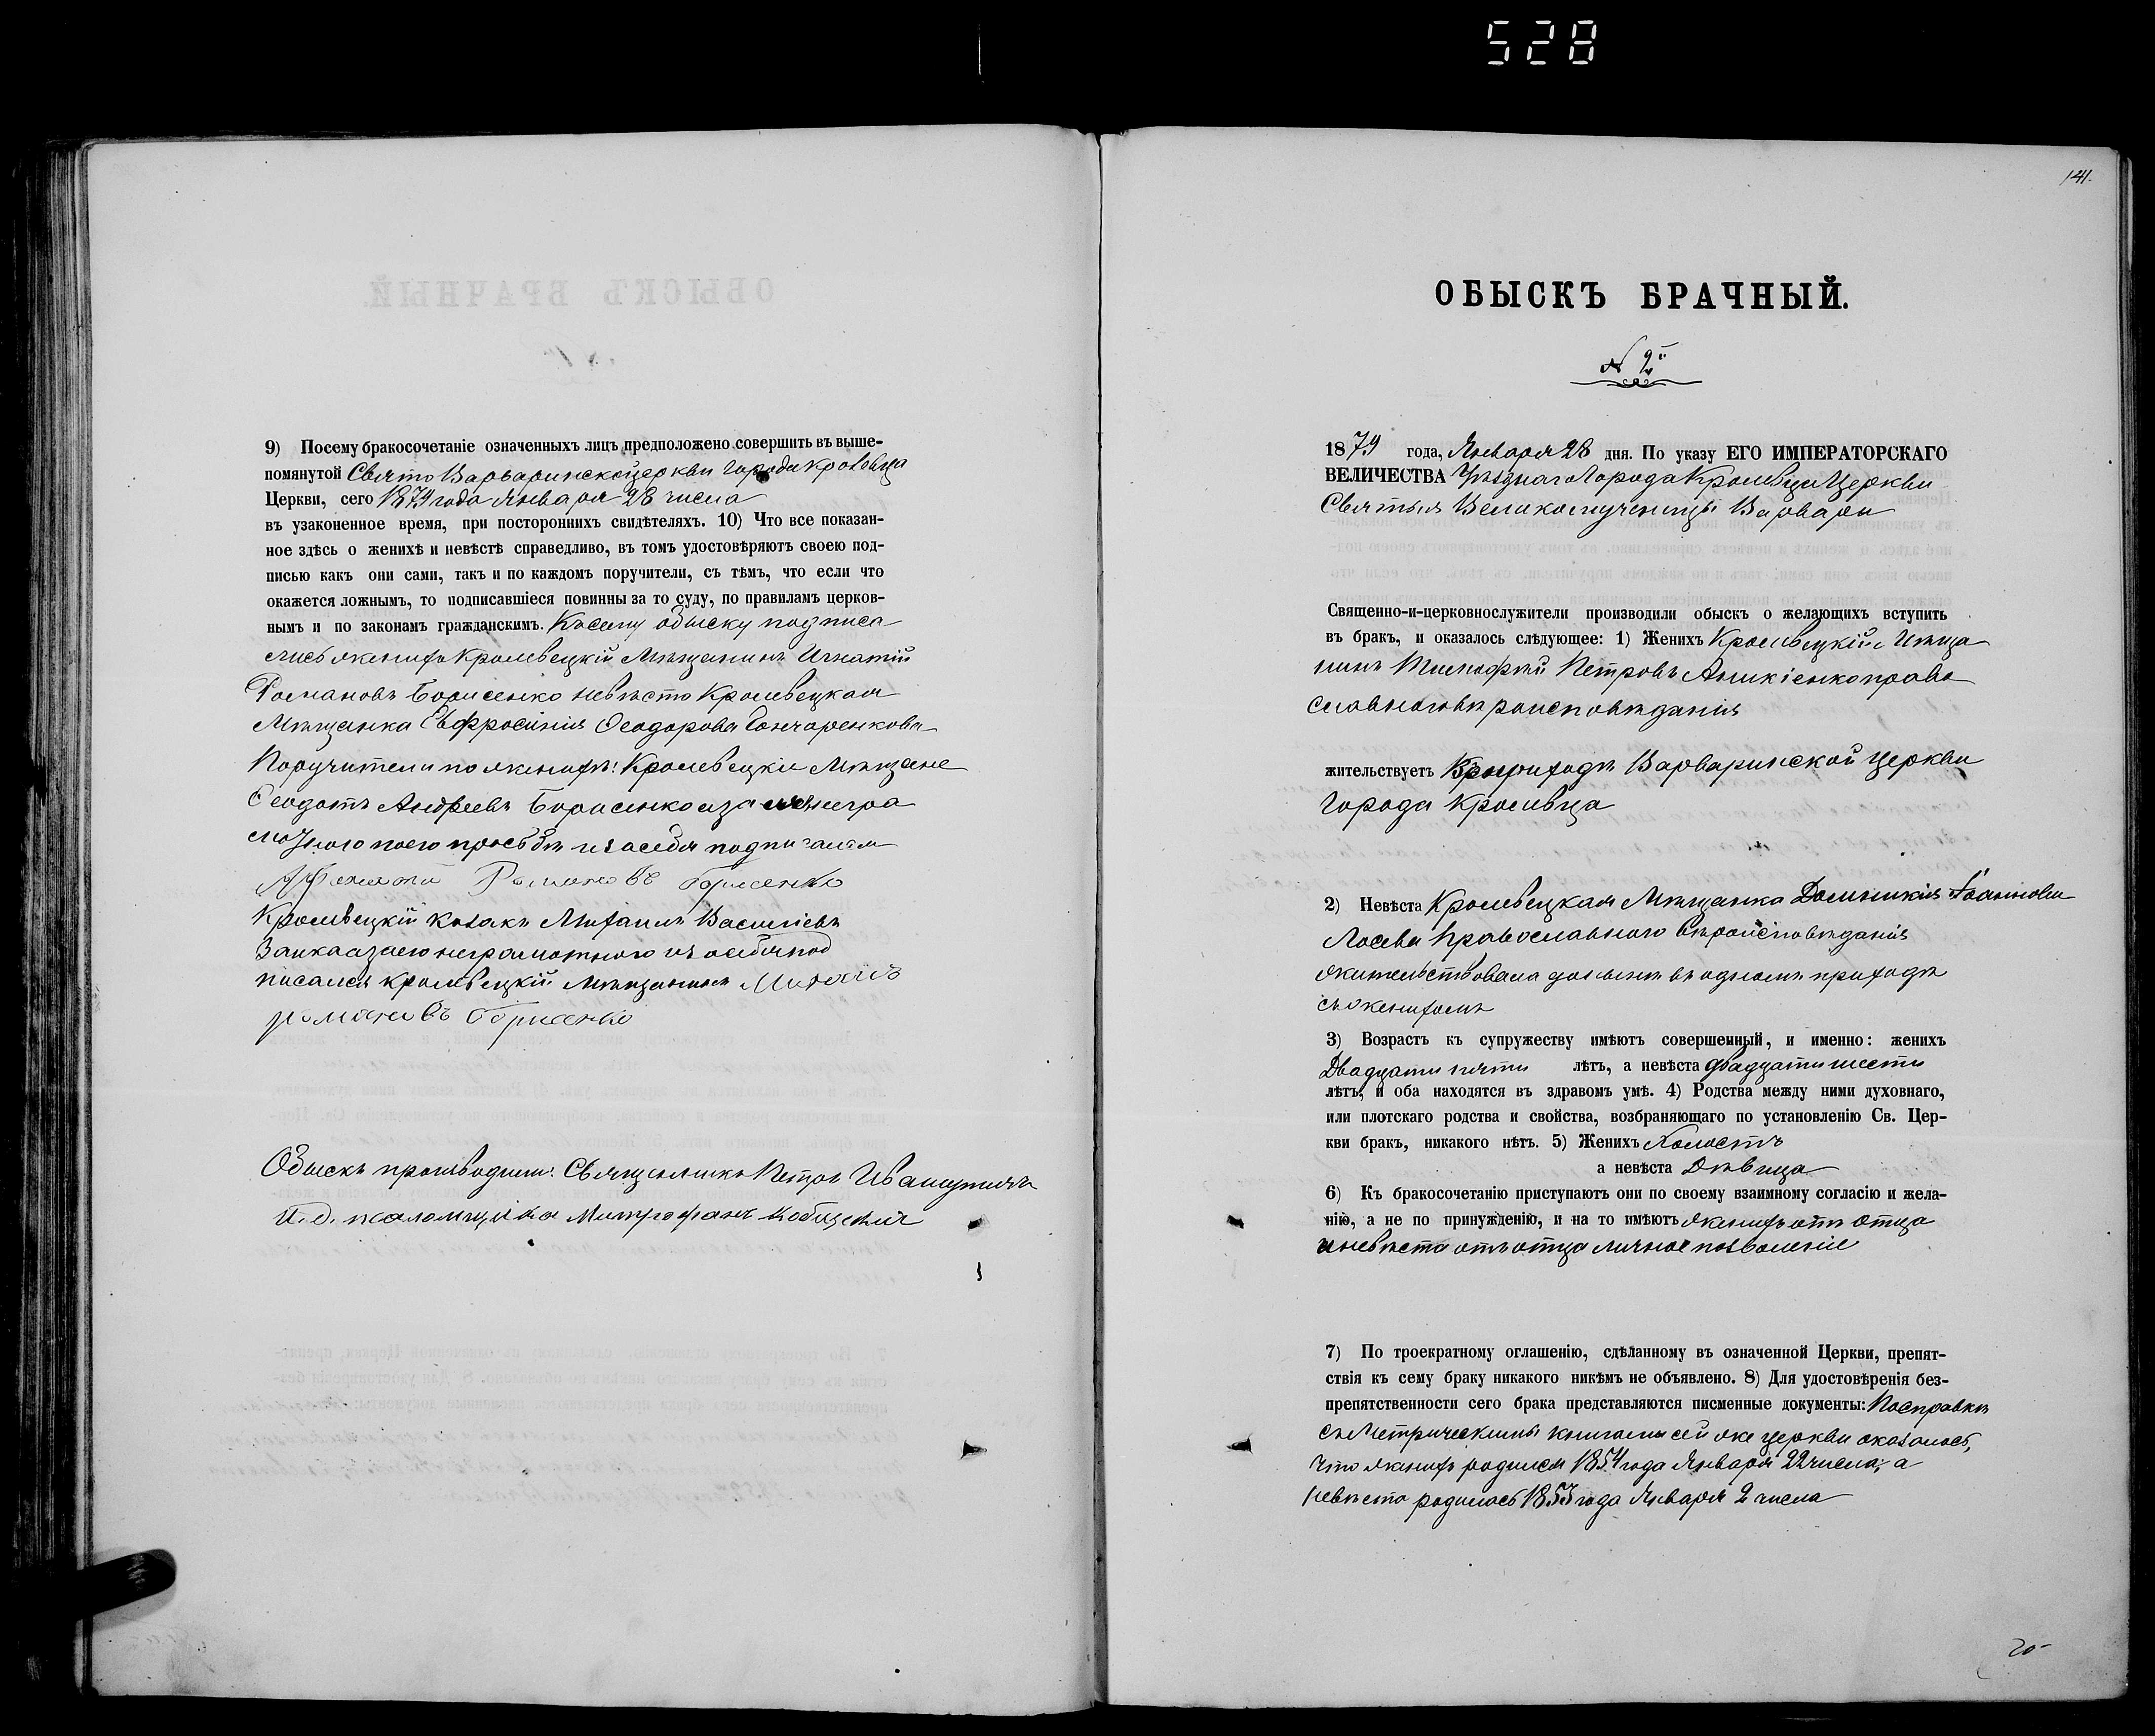 528
9) Посему бракосочетаніе означенныхъ лицъ предположено совершить въ выше-
помянутой Свято Варваринской церкви города Кролевца
Церкви, сего 1879 года Января 28 числа
въ узаконенное время, при постороннихъ свидѣтеляхъ. 10) Что все показан-
ное здѣсь о женихѣ и невѣстѣ справедливо, въ томъ удостовѣряютъ своею под-
писью какъ они сами, такъ и по каждомъ поручители, съ тѣмъ, что если что
окажется ложнымъ, то подписавшіеся повинны за то суду, по правиламъ церков-
нымъ и по законамъ гражданскимъ. К сему обыску подписа
лись женихъ Кролевецкій Мѣщанинъ Игнатій
Романовъ Борисенко невѣста Кролевецкая
Мѣщанка Евфросинія Ѳеодорова Гончаренкова
Поручители по женихѣ: Кролевецкіе Мѣщане
Ѳеодотъ Андреевъ Борисенко а за негра
мотного по его просьбѣ и за себя подписался
Романовъ Борисенко
Кролевецкій козакъ Михаилъ Васильевъ
Заика а за его неграмотного и за себя под
писался Кролевецкій Мѣщанинъ Михаилъ
романовъ Борисенко
Обыскъ производили: Священникъ Петръ
И. д. псаломщика Митрофанъ
141.
ОБЫСКЪ БРАЧНЫЙ.
№ 2й
1879 года, Января 28 дня. По указу ЕГО ИМПЕРАТОРСКАГО
ВЕЛИЧЕСТВА Уѣзднаго Города Кролевца Церкви
Святыя Великомученицы Варвары
Священно-и-церковнослужители производили обыскъ о желающихъ вступить
въ бракъ, и оказалось слѣдующее: 1) Женихъ Кролевецкій Мѣща
нинъ Тимофей Петровъ Аникіенко право
славного вѣроисповѣданія
жительствуетъ В приходѣ Варваринской церкви
города Кролевца
2) Невѣста Кролевецкая Мѣщанка Домникія Іоаннова
Лосева Православного вѣроисповѣданія
жительствовала донынѣ въ одномъ приходѣ
съ женихомъ
3) Возрастъ къ супружеству имѣютъ совершенный, и именно: женихъ
Двадцати пяти лѣтъ, а невѣста двадцати шести
лѣтъ, и оба находятся въ здравомъ умѣ. 4) Родства между ними духовнаго,
или плотскаго родства и свойства, возбраняющаго по установленію Св. Цер-
кви бракъ, никакого нѣтъ. 5) Женихъ Холостъ
а невѣста Дѣвица
6) Къ бракосочетанію приступаютъ они по своему взаимному согласію и жела-
нію, а не по принужденію, и на то имѣютъ женихъ отъ отца
и невѣста отъ отца личное позволеніе
7) По троекратному оглашенію, сдѣланному въ означенной Церкви, препят-
ствія къ сему браку никакого никѣмъ не объявлено. 8) Для удостовѣренія без-
препятственности сего брака представляются писменные документы: По справкѣ
съ Метрическими книгами сей же церкви оказалось,
что женихъ родился 1854 года Января 22 числа; а
невѣста родилась 1853 года Января 2 числа